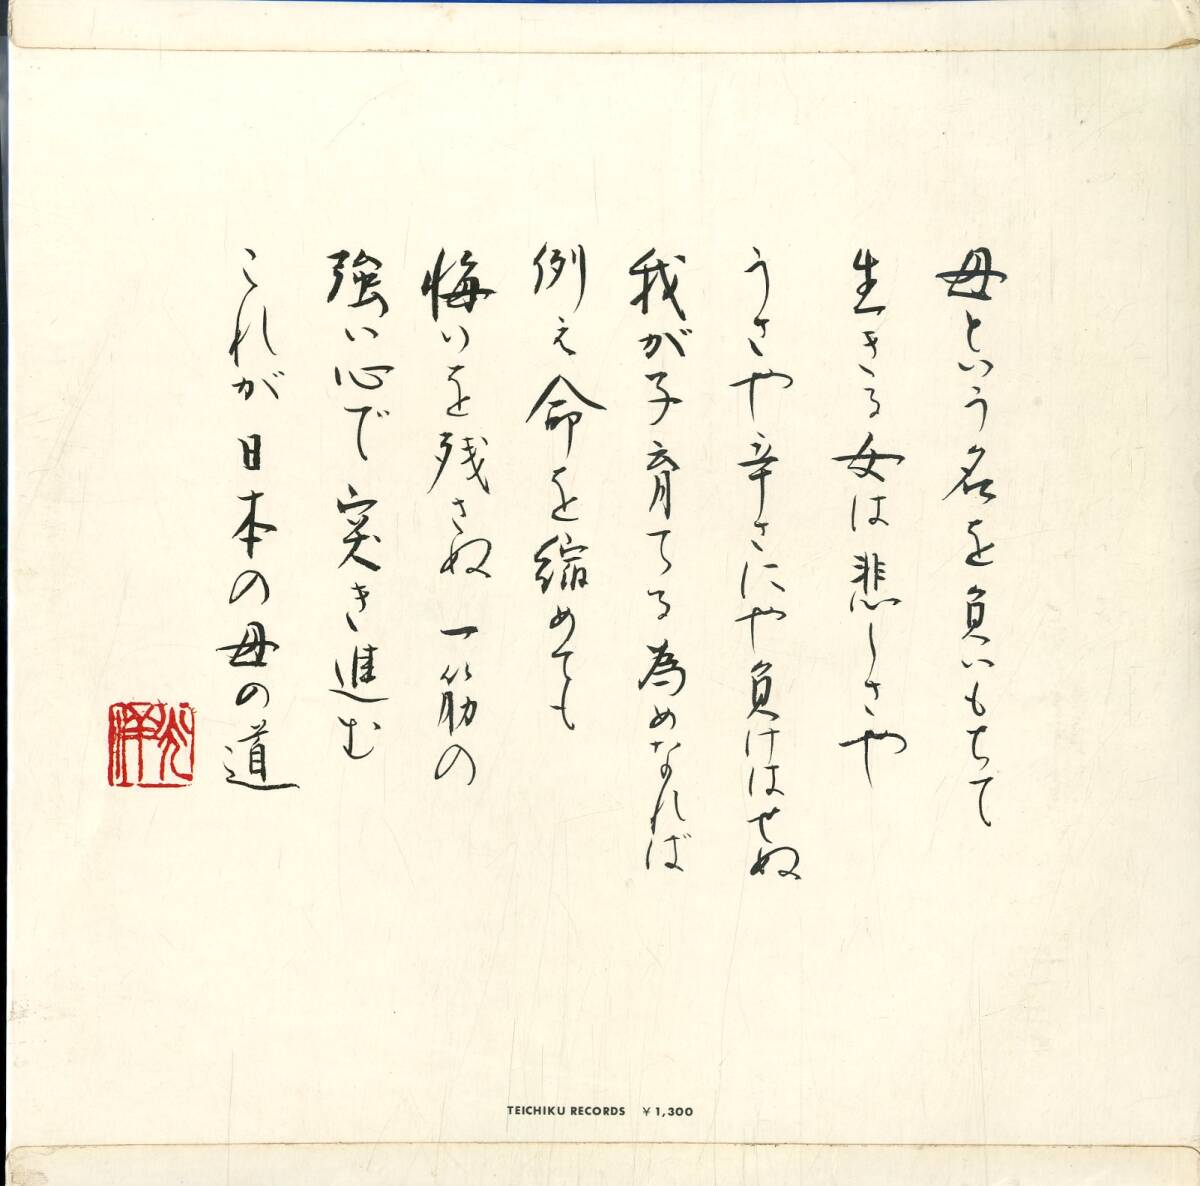 母という名を負いもちて
生きる女は悲しさや
うさや辛さにや負けはせぬ
我が子育てる為めなれば
例え命を縮めても
悔いを残さぬ一筋の
強い心で突き進む
これが 日本の母の道
TEICHIKU RECORDS ¥1,300